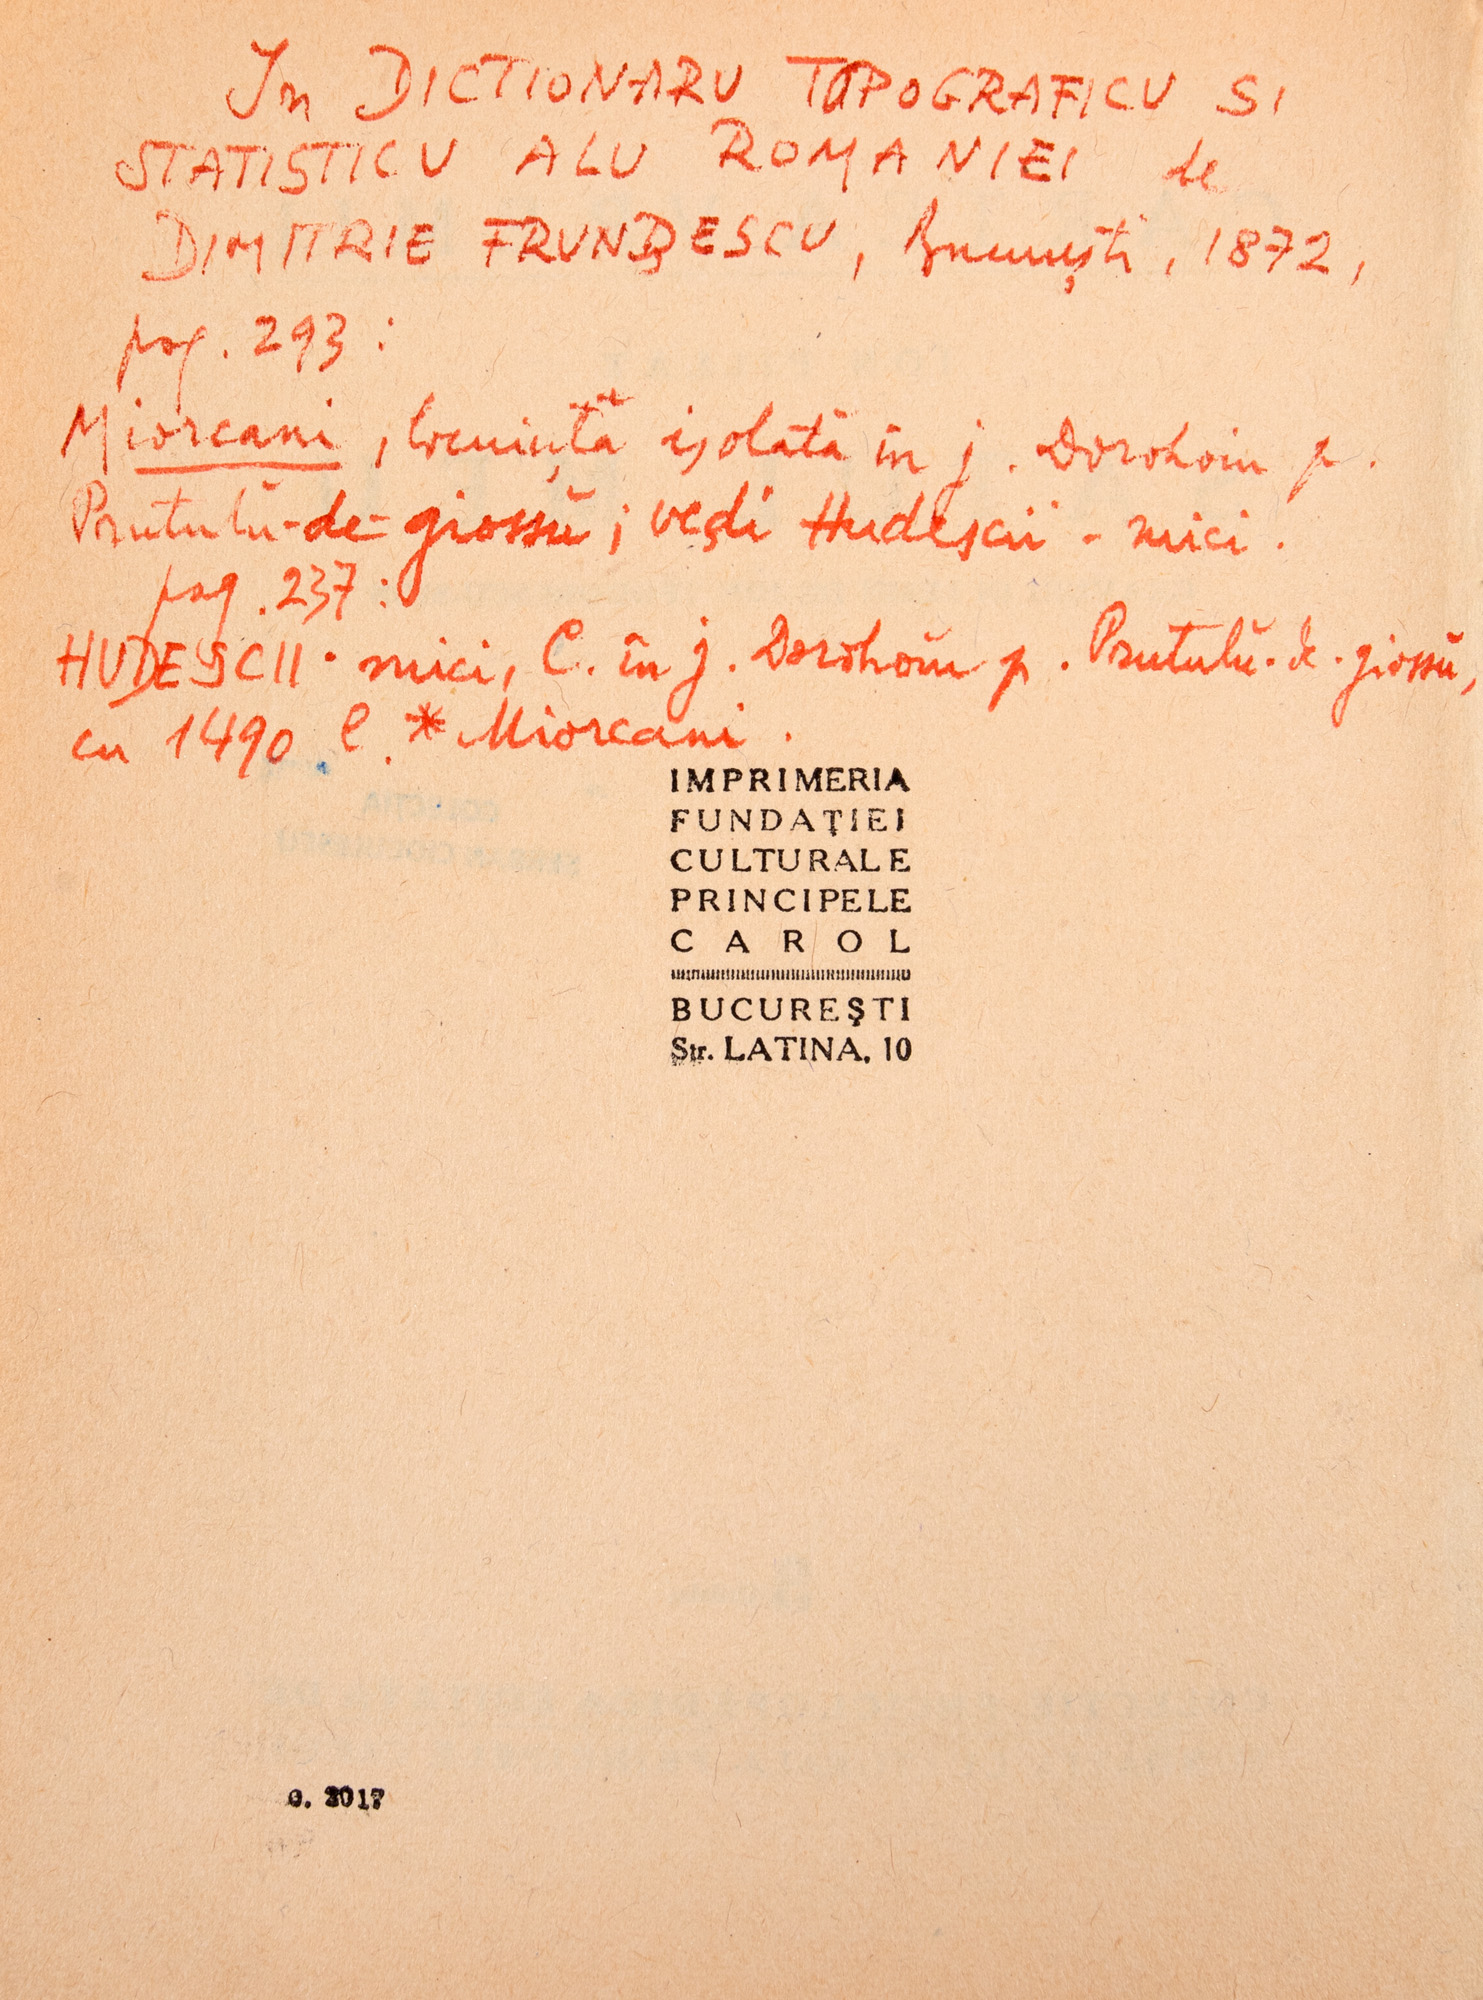 In DICTIONARU TOPOGRAFICU SI
STATISTICU ALU ROMANIEI de
DIMITRIE FRUNḐESCU, București, 1872,
pag. 293:
Miorcani, locuință isolată în j. Dorohoiu p.
Prutulŭ-de-giossŭ; veḑi Hudescii-mici.
pag. 237:
HUDESCII-mici, C. în j. Dorohoiu p. Prutulŭ-de-giossŭ,
cu 1490 l. * Miorcani.
IMPRIMERIA
FUNDAȚIEI
CULTURALE
PRINCIPELE
CAROL
BUCUREȘTI
Str. LATINA, 10
c. 2017